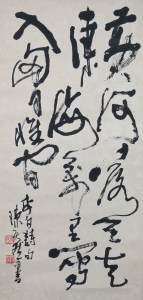 黄河落天走
東海萬里寫
入胸懷間
李白詩句